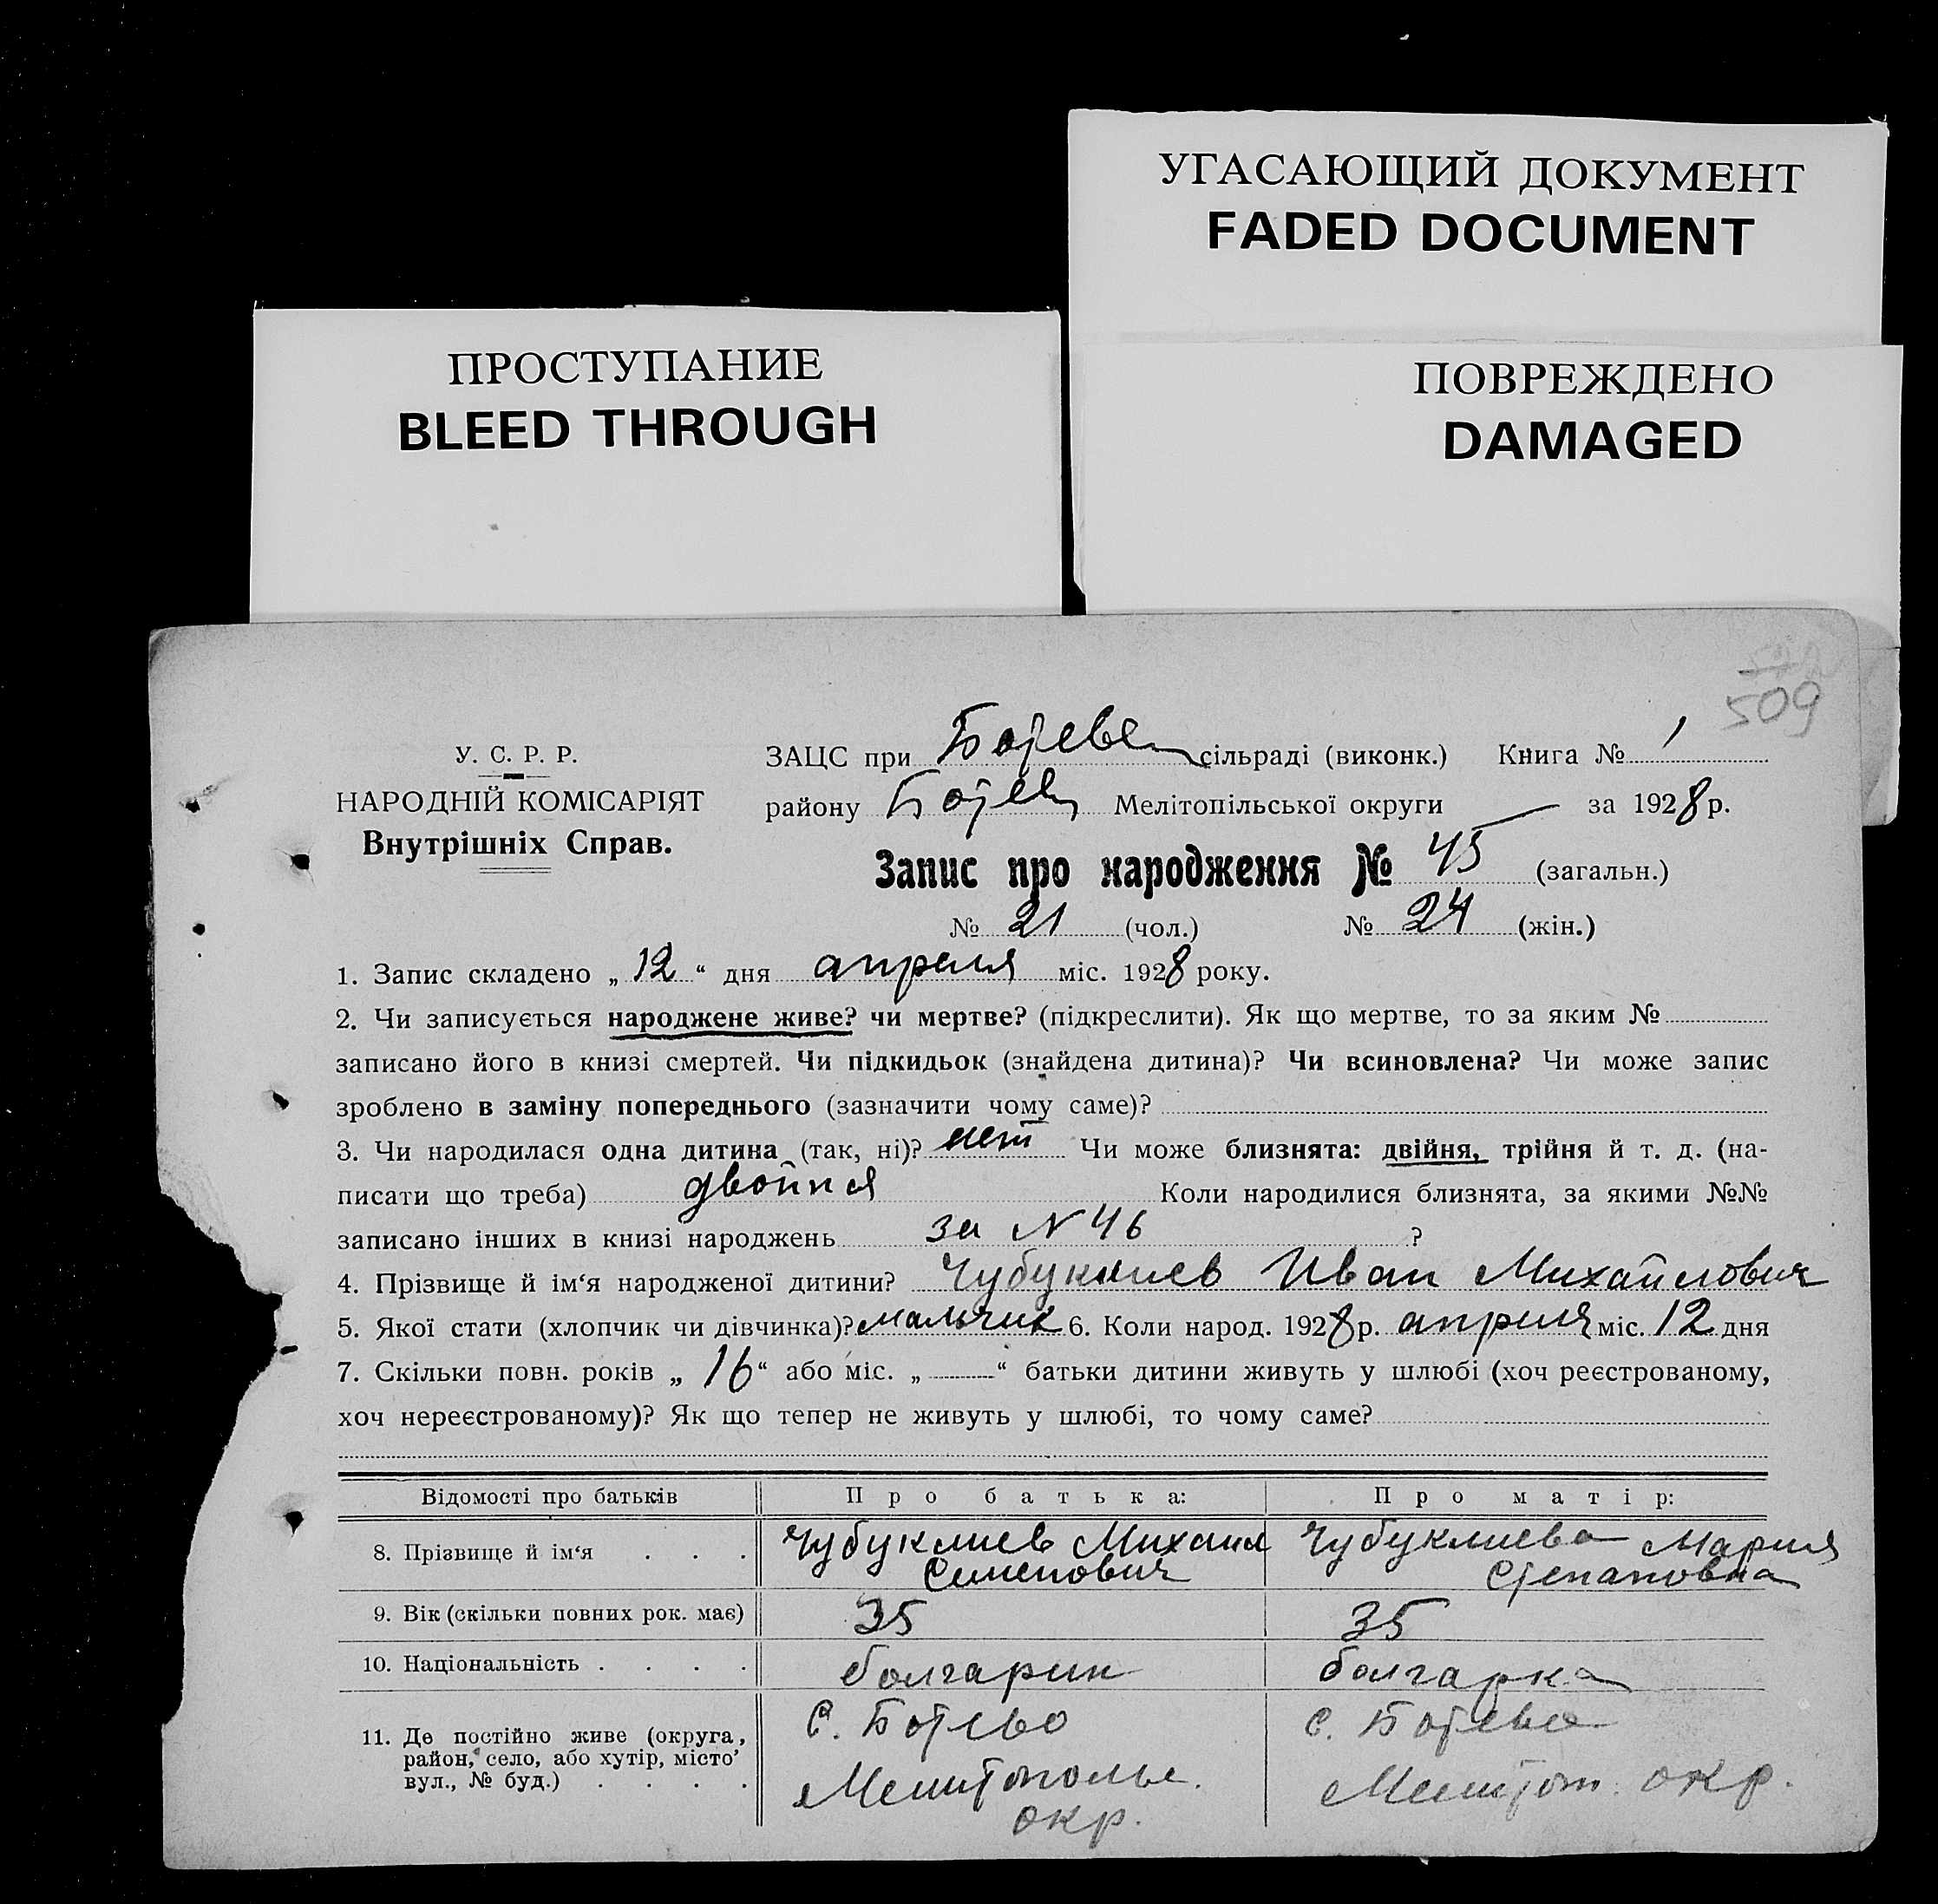 УГАСАЮЩИЙ ДОКУМЕНТ
FADED DOCUMENT
ПРОСТУПАНИЕ
BLEED THROUGH
ПОВРЕЖДЕНО
DAMAGED
509
У. С. Р. Р.
НАРОДНІЙ КОМІСАРІЯТ
Внутрішніх Справ.
ЗАЦС при Ботеве сільраді (виконк.) Книга № 1
району Ботев Мелітопільської округи — за 1928 р.
Запис про народження № 45 (загальн.)
№ 21 (чол.) № 24 (жін.)
1. Запис складено „12“ дня апреля міс. 1928 року.
2. Чи записується народжене живе? чи мертве? (підкреслити). Як що мертве, то за яким №
записано його в книзі смертей. Чи підкидьок (знайдена дитина)? Чи всиновлена? Чи може запис
зроблено в заміну попереднього (зазначити чому саме)?
3. Чи народилася одна дитина (так, ні)? нет Чи може близнята: двійня, трійня й т. д. (на-
писати що треба) двойня Коли народилися близнята, за якими №№
записано інших в книзі народжень за N 46 ?
4. Прізвище й ім‘я народженої дитини? Чубуклиев Иван Михайлович
5. Якої стати (хлопчик чи дівчинка)? мальчик 6. Коли народ. 1928 р. апреля міс. 12 дня
7. Скільки повн. років „16“ або міс. „—“ батьки дитини живуть у шлюбі (хоч реєстрованому,
хоч нереєстрованому)? Як що тепер не живуть у шлюбі, то чому саме?
Відомості про батьків Про батька: Про матір:
8. Прізвище й ім‘я . . . Чубуклиев Михаил Семенович Чубуклиева Мария Степановна
9. Вік (скільки повних рок. має) 35 35
10. Національність . . . . болгарин болгарка
11. Де постійно живе (округа, район, село, або хутір, місто’ вул., № буд.) . . . . С. Ботево Мелитополье. окр. с. Ботево Мелитоп. окр.